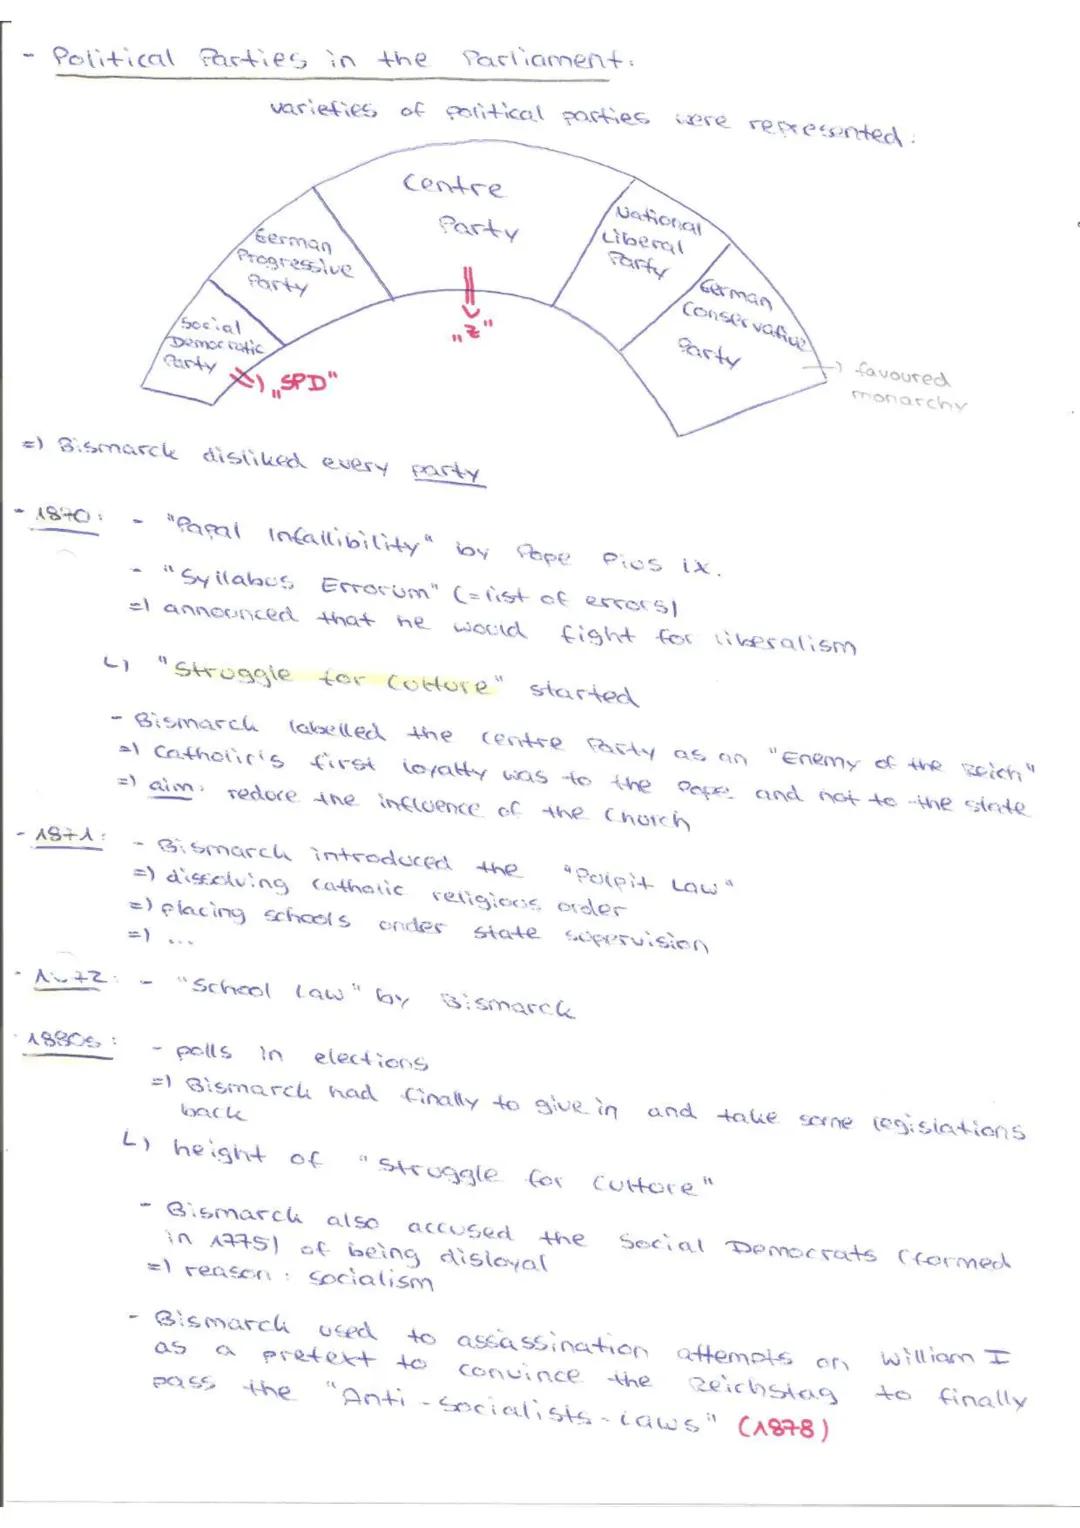 - Political Parties in the Parliament:
varieties of political parties were represented:
Centre
Party
"Z"
German
Progressive
Party
Social
Democratic
Party
=) "SPD"
National
Liberal
Party
German
Conservative
Party
=) favoured
monarchy
=) Bismarck disliked every party
- 1870: - "Papal Infallibility" by Pope Pius ix.
- "Syllabus Errorum" (=list of errors)
=) announced that he would fight for liberalism
L) "Struggle for Culture" started
- Bismarck labelled the centre Party as an "Enemy of the Reich"
=) Catholic's first loyalty was to the Pope and not to the state
=) aim: reduce the influence of the Church
- 1871: - Bismarck introduced the "Pulpit Law"
=) dissolving catholic religious order
=) placing schools under state supervision
=) ...
- 1872: - "School Law" by Bismarck
- 1880s: - polls in elections
=) Bismarck had finally to give in and take some legislations
back
L) height of "Struggle for Culture"
- Bismarck also accused the Social Democrats (formed
in 1775) of being disloyal
=) reason: socialism
- Bismarck used to assassination attempts on William I
as a pretext to convince the Reichstag to finally
pass the "Anti-Socialists-laws" (1878)